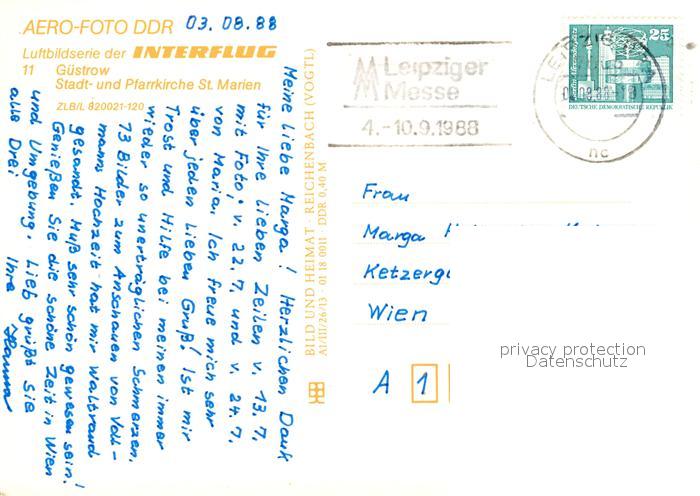 AERO-FOTO DDR 03.08.88
Luftbildserie der INTERFLUG
11 Güstrow
Stadt- und Pfarrkirche St. Marien
ZLB/L 820021-120
Meine liebe Marga! Herzlichen Dank
für Ihre lieben Zeilen v. 13.7.
mit Foto, v. 22.7. und v. 24.7.
von Maria. Ich freue mich sehr
über jeden lieben Gruß! Ist mir
Trost und Hilfe bei meinen immer
wieder so unerträglichen Schmerzen.
73 Bilder zum Anschauen von Voll-
manns Hochzeit hat mir Waltraud
gesandt. Muß sehr schön gewesen sein!
Genießen Sie die schöne Zeit in Wien
und Umgebung. Lieb grüßt Sie
alle Drei Ihre Hanna
BILD UND HEIMAT · REICHENBACH (VOGTL)
A1/III/26/13 · 01 18 0011 DDR 0,40 M
Leipziger
Messe
4.-10.9.1988
LEIPZIG
nc
25
DEUTSCHE DEMOKRATISCHE REPUBLIK
Frau
Marga
Ketzerg
Wien
A 1
privacy protection
Datenschutz